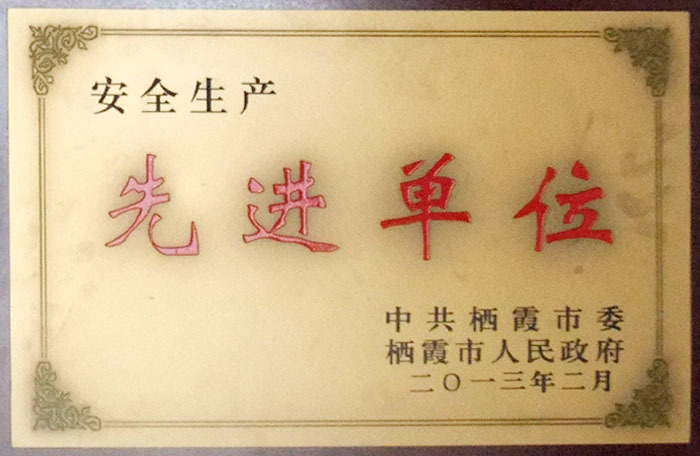 安全生产
先进单位
中共栖霞市委
栖霞市人民政府
二〇一三年二月